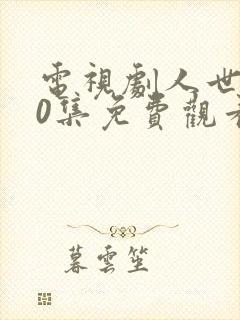 電視劇人世
0集免費觀看
暮雲笙